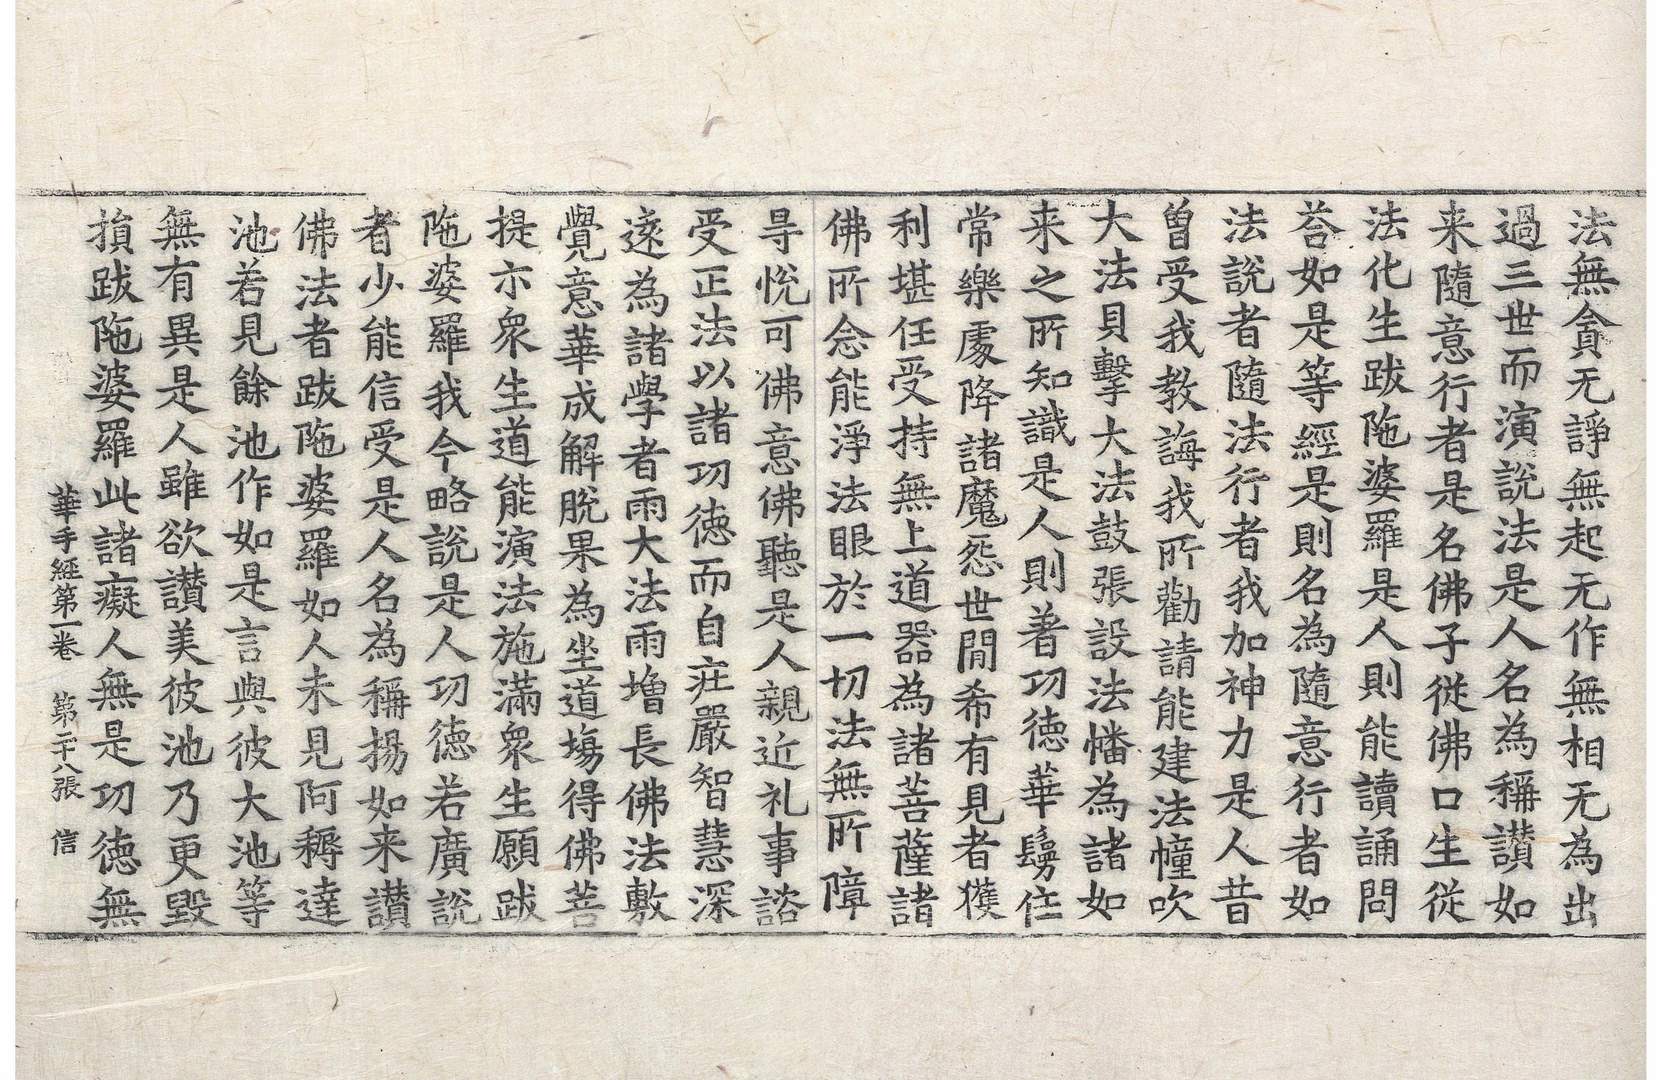 法無貪无諍無起无作無相无為出
過三世而演說法是人名為稱讚如
来隨意行者是名佛子從佛口生從
法化生跋陁婆羅是人則能讀誦問
荅如是等經是則名為隨意行者如
法說者隨法行者我加神力是人昔
曽受我教誨我所勸請能建法幢吹
大法貝擊大法鼓張設法幡為諸如
来之所知識是人則著功徳華鬘住
常樂處降諸魔怨世間希有見者獲
利堪任受持無上道器為諸菩薩諸
佛所念能淨法眼於一切法無所障
㝵悅可佛意佛聽是人親近礼事諮
受正法以諸功徳而自疘嚴智慧深
逺為諸學者雨大法雨増長佛法敷
覺意華成解脫果為坐道塲得佛菩
提示衆生道能演法施滿衆生願跋
陁婆羅我今略說是人功徳若廣說
者少能信受是人名為稱揚如来讃
佛法者跋陁婆羅如人未見阿耨達
池若見餘池作如是言與彼大池等
無有異是人雖欲讃美彼池乃更毀
損跋陁婆羅此諸癡人無是功徳無
華手經第一卷　第二十八張　信